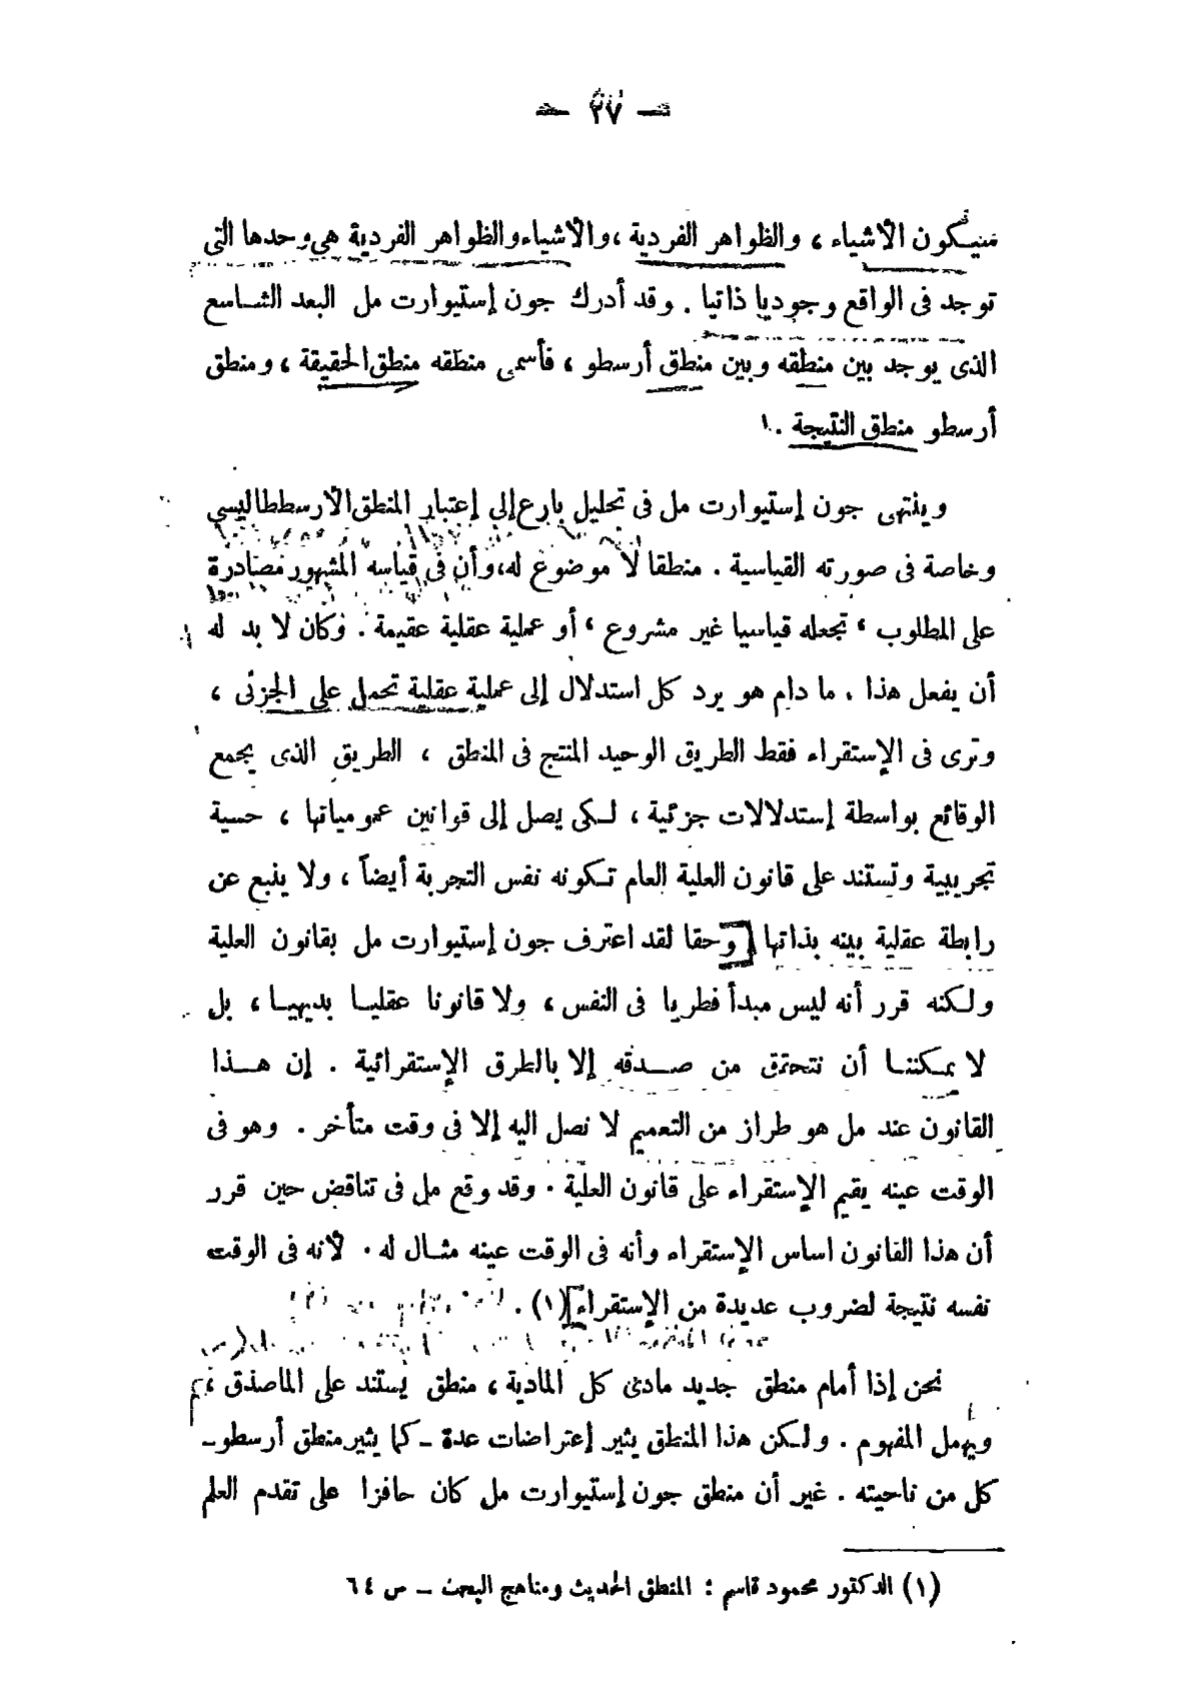 — ٢٧ —
سيكون الأشياء ، والظواهر الفردية ، والأشياء والظواهر الفردية هى وحدها التى
توجد فى الواقع وجوديا ذاتيا . وقد أدرك جون إستيوارت مل البعد الشاسع
الذى يوجد بين منطقه وبين منطق أرسطو ، فأسمى منطقه منطق الحقيقة ، ومنطق
أرسطو منطق النتيجة .
وينتهى جون إستيوارت مل فى تحليل بارع إلى إعتبار المنطق الأرسططاليسي
وخاصة فى صورته القياسية . منطقا لا موضوع له، وأن فى قياسه المشهور مصادرة
على المطلوب ، تجعله قياسيا غير مشروع ، أو عملية عقلية عقيمة . وكان لا بد له
أن يفعل هذا . ما دام هو يرد كل استدلال إلى عملية عقلية تحمل على الجزئى ،
وترى فى الإستقراء فقط الطريق الوحيد المنتج فى المنطق ، الطريق الذى يجمع
الوقائع بواسطة إستدلالات جزئية ، لكى يصل إلى قوانين عمومياتها ، حسية
تجريبية وتستند على قانون العلية العام تكونه نفس التجربة أيضاً ، ولا ينبع عن
رابطة عقلية بينه بذاتها [وحقا لقد اعترف جون إستيوارت مل بقانون العلية
ولكنه قرر أنه ليس مبدأ فطريا فى النفس ، ولا قانونا عقليا بديهيا ، بل
لا يمكننا أن نتحقق من صدقه إلا بالطرق الإستقرائية . إن هذا
القانون عند مل هو طراز من التعميم لا نصل اليه إلا فى وقت متأخر . وهو فى
الوقت عينه يقيم الإستقراء على قانون العلية . وقد وقع مل فى تناقض حين قرر
أن هذا القانون اساس الإستقراء وأنه فى الوقت عينه مثال له . لأنه فى الوقت
نفسه نتيجة لضروب عديدة من الإستقراء](١) .
نحن إذا أمام منطق جديد مادى كل المادية ، منطق يستند على الماصدق ،
ويهمل المفهوم . ولكن هذا المنطق يثير إعتراضات عدة – كما يثير منطق أرسطو –
كل من ناحيته . غير أن منطق جون إستيوارت مل كان حافزا على تقدم العلم
(١) الدكتور محمود قاسم : المنطق الحديث ومناهج البحث – ص ٦٤